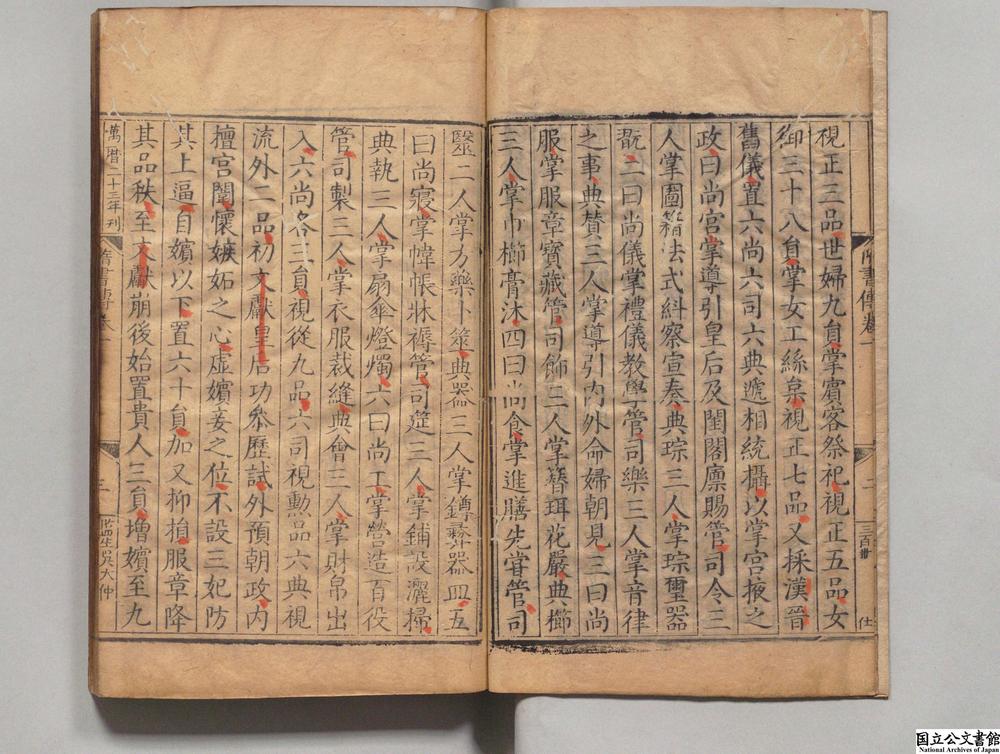 隋書傳卷一
二
三百卅
仕
視正三品世婦九員掌賓客祭祀視正五品女
御三十八員掌女工絲枲視正七品又採漢晉
舊儀置六尚六司六典遞相統攝以掌宮掖之
政一曰尚宮掌導引皇后及閨閤廩賜管司令三
人掌圖籍法式糾察宣奏典琮三人掌琮璽器
翫二曰尚儀掌禮儀教學管司樂三人掌音律
之事典贊三人掌導引內外命婦朝見三曰尚
服掌服章寶藏管司飾三人掌簪珥花嚴典櫛
三人掌巾櫛膏沐四曰尚食掌進膳先嘗管司
醫三人掌方藥卜筮典器三人掌鐏彝器皿五
曰尚寢掌幃帳牀褥管司筵三人掌鋪設灑掃
典執三人掌扇傘燈燭六曰尚工掌營造百役
管司製三人掌衣服裁縫典會三人掌財帛出
入六尚各三員視從九品六司視勳品六典視
流外二品初文獻皇后功參歷試外預朝政內
擅宮闈懷嫉妬之心虛嬪妾之位不設三妃防
其上逼自嬪以下置六十員加又抑損服章降
其品秩至文獻崩後始置貴人三員增嬪至九
萬曆二十三年刊
隋書傳卷一
三
監生吳大仲
国立公文書館
National Archives of Japan